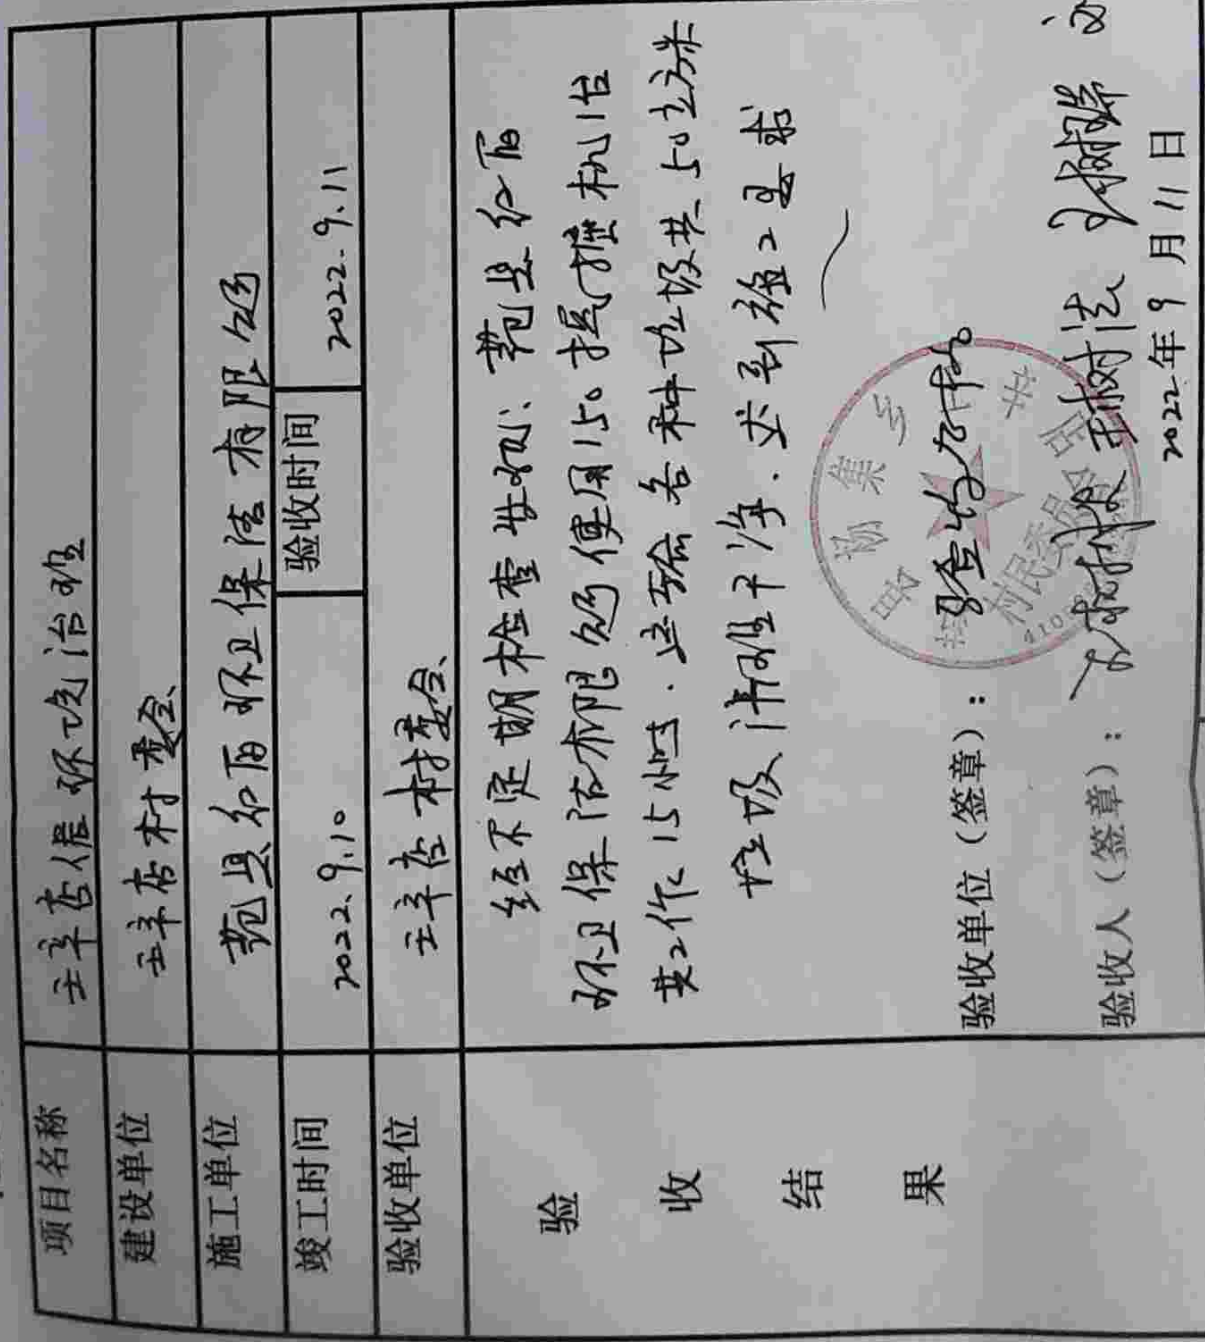 项目名称 王辛店人居环境治理
建设单位 王辛店村委会
施工单位 范县红百环卫保洁有限公司
竣工时间 2022.9.10 验收时间 2022.9.11
验收单位 王辛店村委会
验收结果
经不定期检查发现：范县红百
环卫保洁有限公司使用150挖掘机1台
共工作15小时．运输各种垃圾共50立方米
垃圾清理干净．达到施工要求
验收单位（签章）： 验收合格
县杨集乡
村民委员会
验收人（签章）： 王树法
2022年9月11日